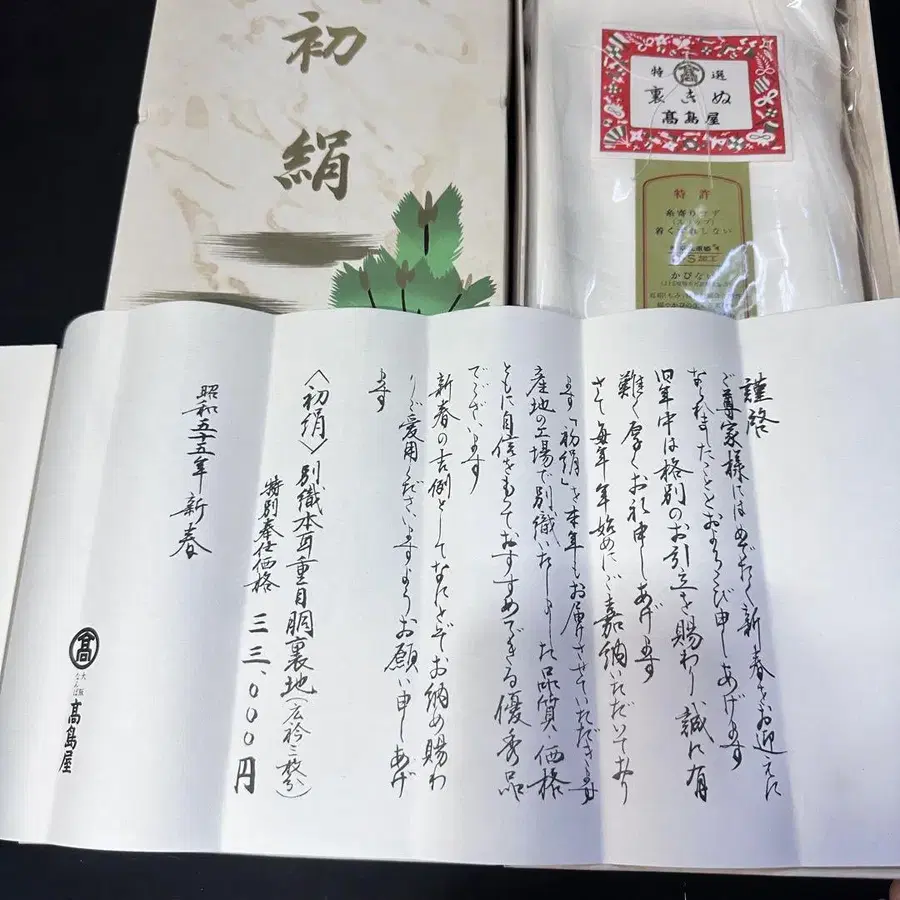 初絹
特選
髙
裏きぬ
髙島屋
特許
糸寄り
着くずれしない
S加工
かびない
謹啓
ご尊家様にはめでたく新春をお迎えに
なられましたこととおよろこび申しあげます
旧年中は格別のお引立を賜わり誠に有
難く厚くお礼申しあげます
さて毎年年始めにご嘉納いただいており
ます「初絹」を本年もお届けさせていただきます
産地の工場で別織いたしました品質・価格
ともに自信をもっておすすめできる優秀品
でございます
新春の吉例としてなにとぞお納め賜わ
りご愛用くださいますようお願い申しあげ
ます
〈初絹〉別織本耳重目胴裏地(広衿三枚分)
特別奉仕価格 三三、〇〇〇円
昭和五十五年 新春
髙
大阪
なんば
髙島屋